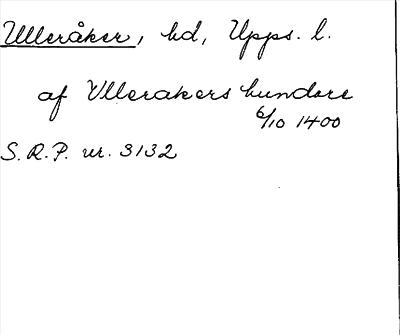 Ulleråker, hd, Upps. l.
af Vllerakers hundare
6/10 1400
S.R.P. nr. 3132